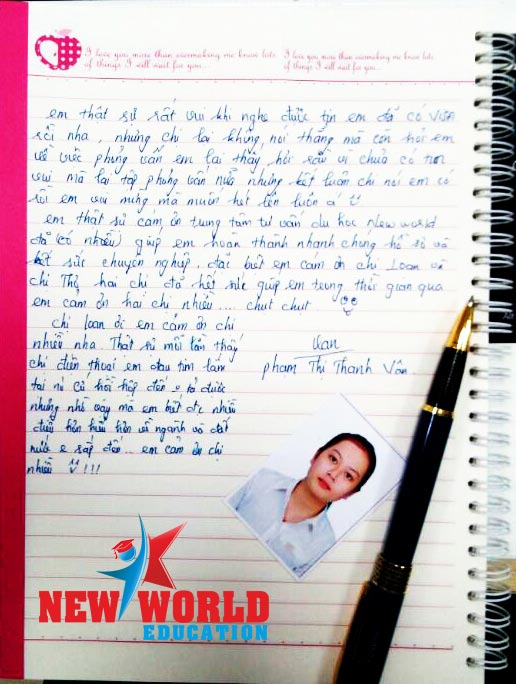 I love you more than overmaking me know lots of things I will wait for you... I love you more than overmaking me know lots of things I will wait for you...
em thật sự rất vui khi nghe được tin em đã có VISA
rồi nha, nhưng chị lại không nói thẳng mà còn hỏi em
về việc phỏng vấn em lại thấy hơi sầu vì chưa có tin
vui mà lại tập phỏng vấn nữa nhưng kết luận chị nói em có
rồi em vui mừng mà muốn hét lên luôn á
em thật sự cảm ơn trung tâm tư vấn du học New world
đã (có nhiều) giúp em hoàn thành nhanh chóng hồ sơ và
hết sức chuyên nghiệp, đặc biệt em cám ơn chị Loan và
chị Thy hai chị đã hết sức giúp em trong thời gian qua
em cảm ơn hai chị nhiều .... chụt chụt
Chị loan ơi em cảm ơn chị
nhiều nha. Thật sự mỗi lần thấy
chị điện thoại em đau tim lắm
tại nó cứ hồi hộp đến tả được
nhưng nhờ vậy mà em biết đc nhiều
điều hơn hiểu hơn về ngành và đất
nước e sắp đến... em cảm ơn chị
nhiều !!!
Van
phạm Thị Thanh Vân
NEW WORLD
EDUCATION